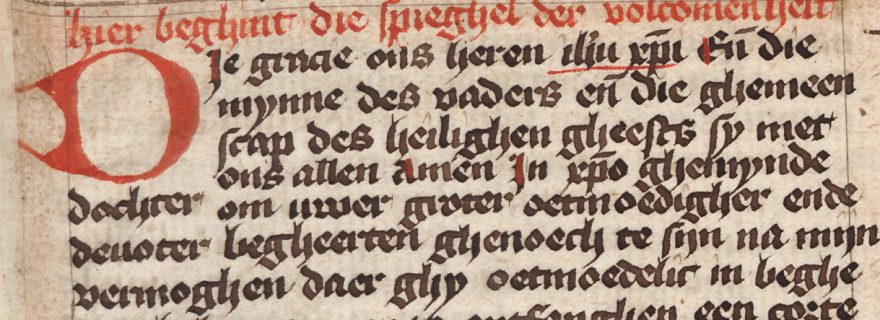 hier beghint die spieghel der volcomenheit
Die gracie ons heren ihu xpi En̄ die
mynne des vaders en̄ die ghemeen
scap des heilighen gheests sy met
ons allen Amen In xpo ghemynde
dochter om uwer groter oetmoedigher ende
deuoter begheerten ghenoech te syn na mijn
vermoghen daer ghy oetmoedelic in beghe
een corte